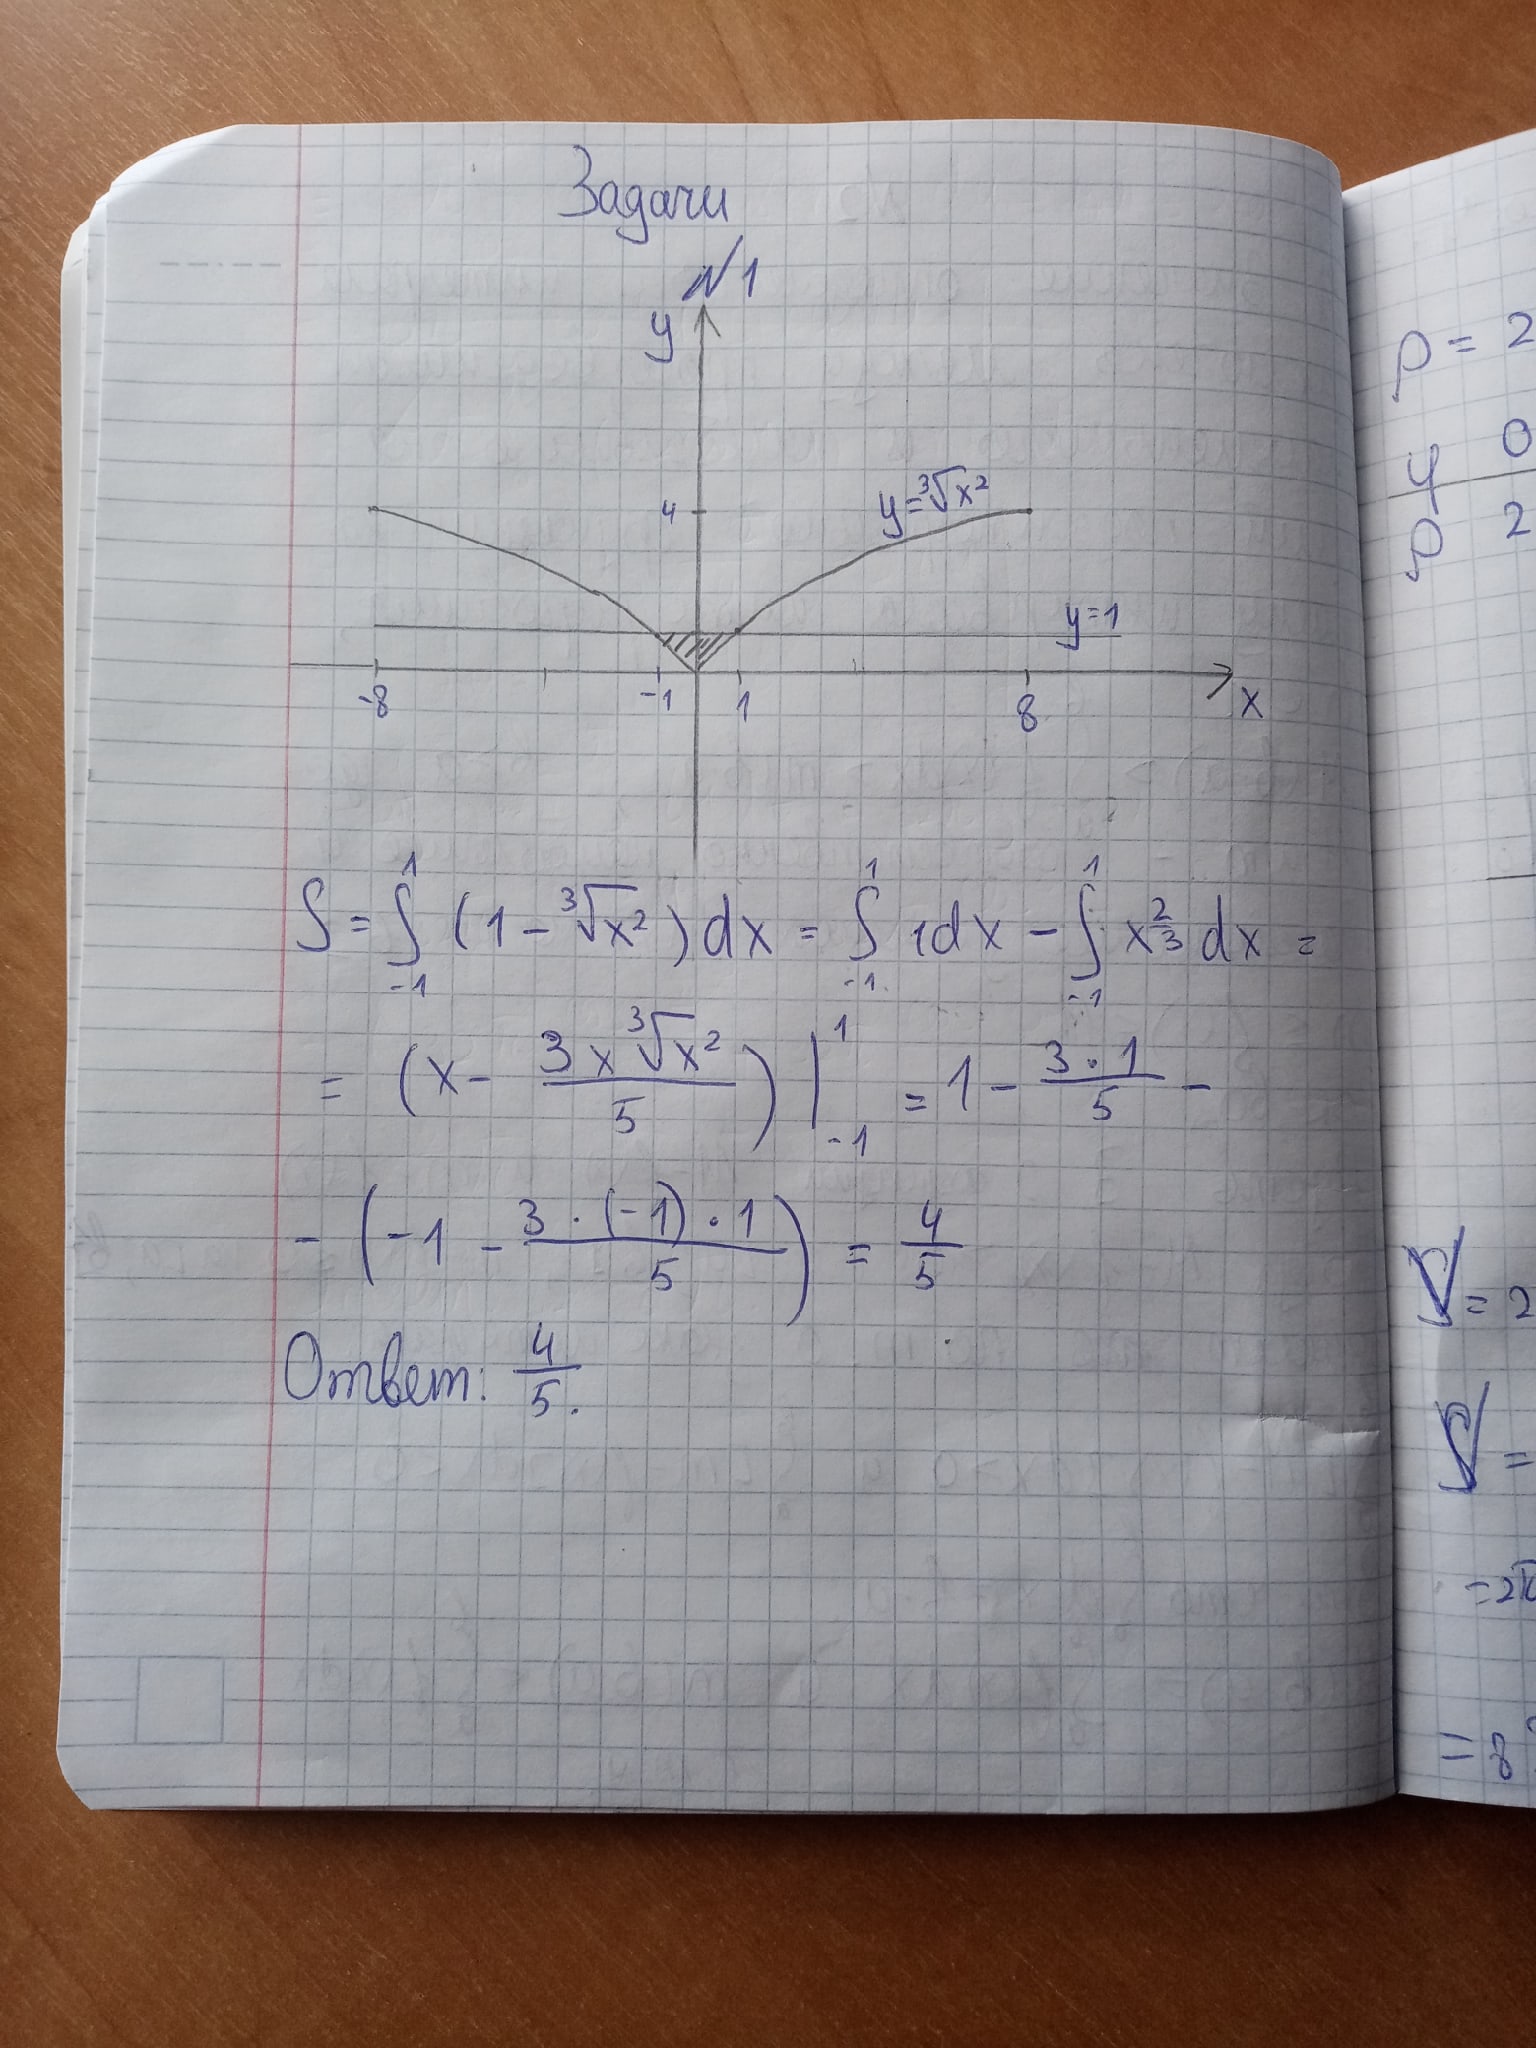 Задачи
№1
y
4
y=∛x²
y=1
-8
-1
1
8
x
S = ∫₋₁¹ (1 - ∛x²) dx = ∫₋₁¹ 1dx - ∫₋₁¹ x^(2/3) dx =
= (x - (3x∛x²)/5) |₋₁¹ = 1 - (3·1)/5 -
- (-1 - (3·(-1)·1)/5) = 4/5
Ответ: 4/5.
ρ = 2
φ 0
ρ 2
S = 2
S =
= 2π
= 8